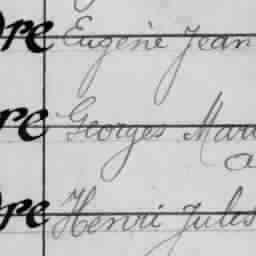 re Eugène Jean
re Georges Mar
a
re Henri Jules